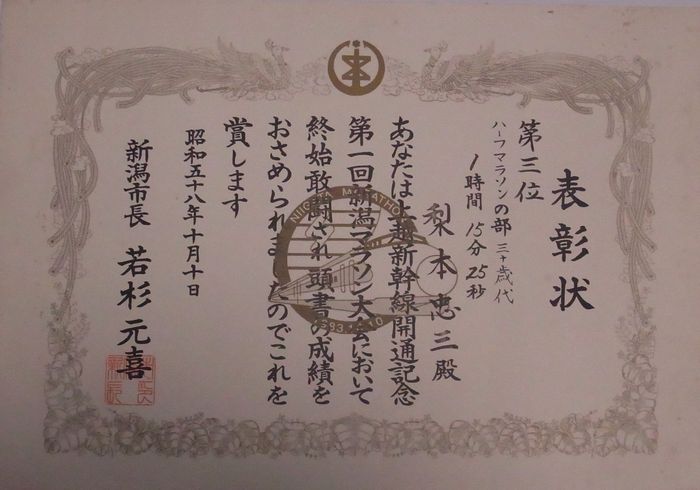 表彰状
第三位
ハーフマラソンの部 三十歳代
1時間 15分 25秒
梨本忠三殿
あなたは上越新幹線開通記念
第一回新潟マラソン大会において
終始敢闘され頭書の成績を
おさめられましたのでこれを
賞します
昭和五十八年十月十日
新潟市長 若杉元喜
NIIGATA MARATHON